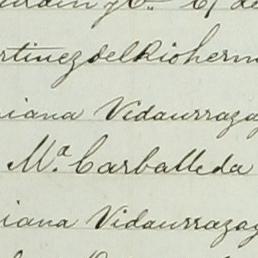 rtinez del Rio herm
iana Vidaurrazag
Mª Carballeda
iana Vidaurrazag